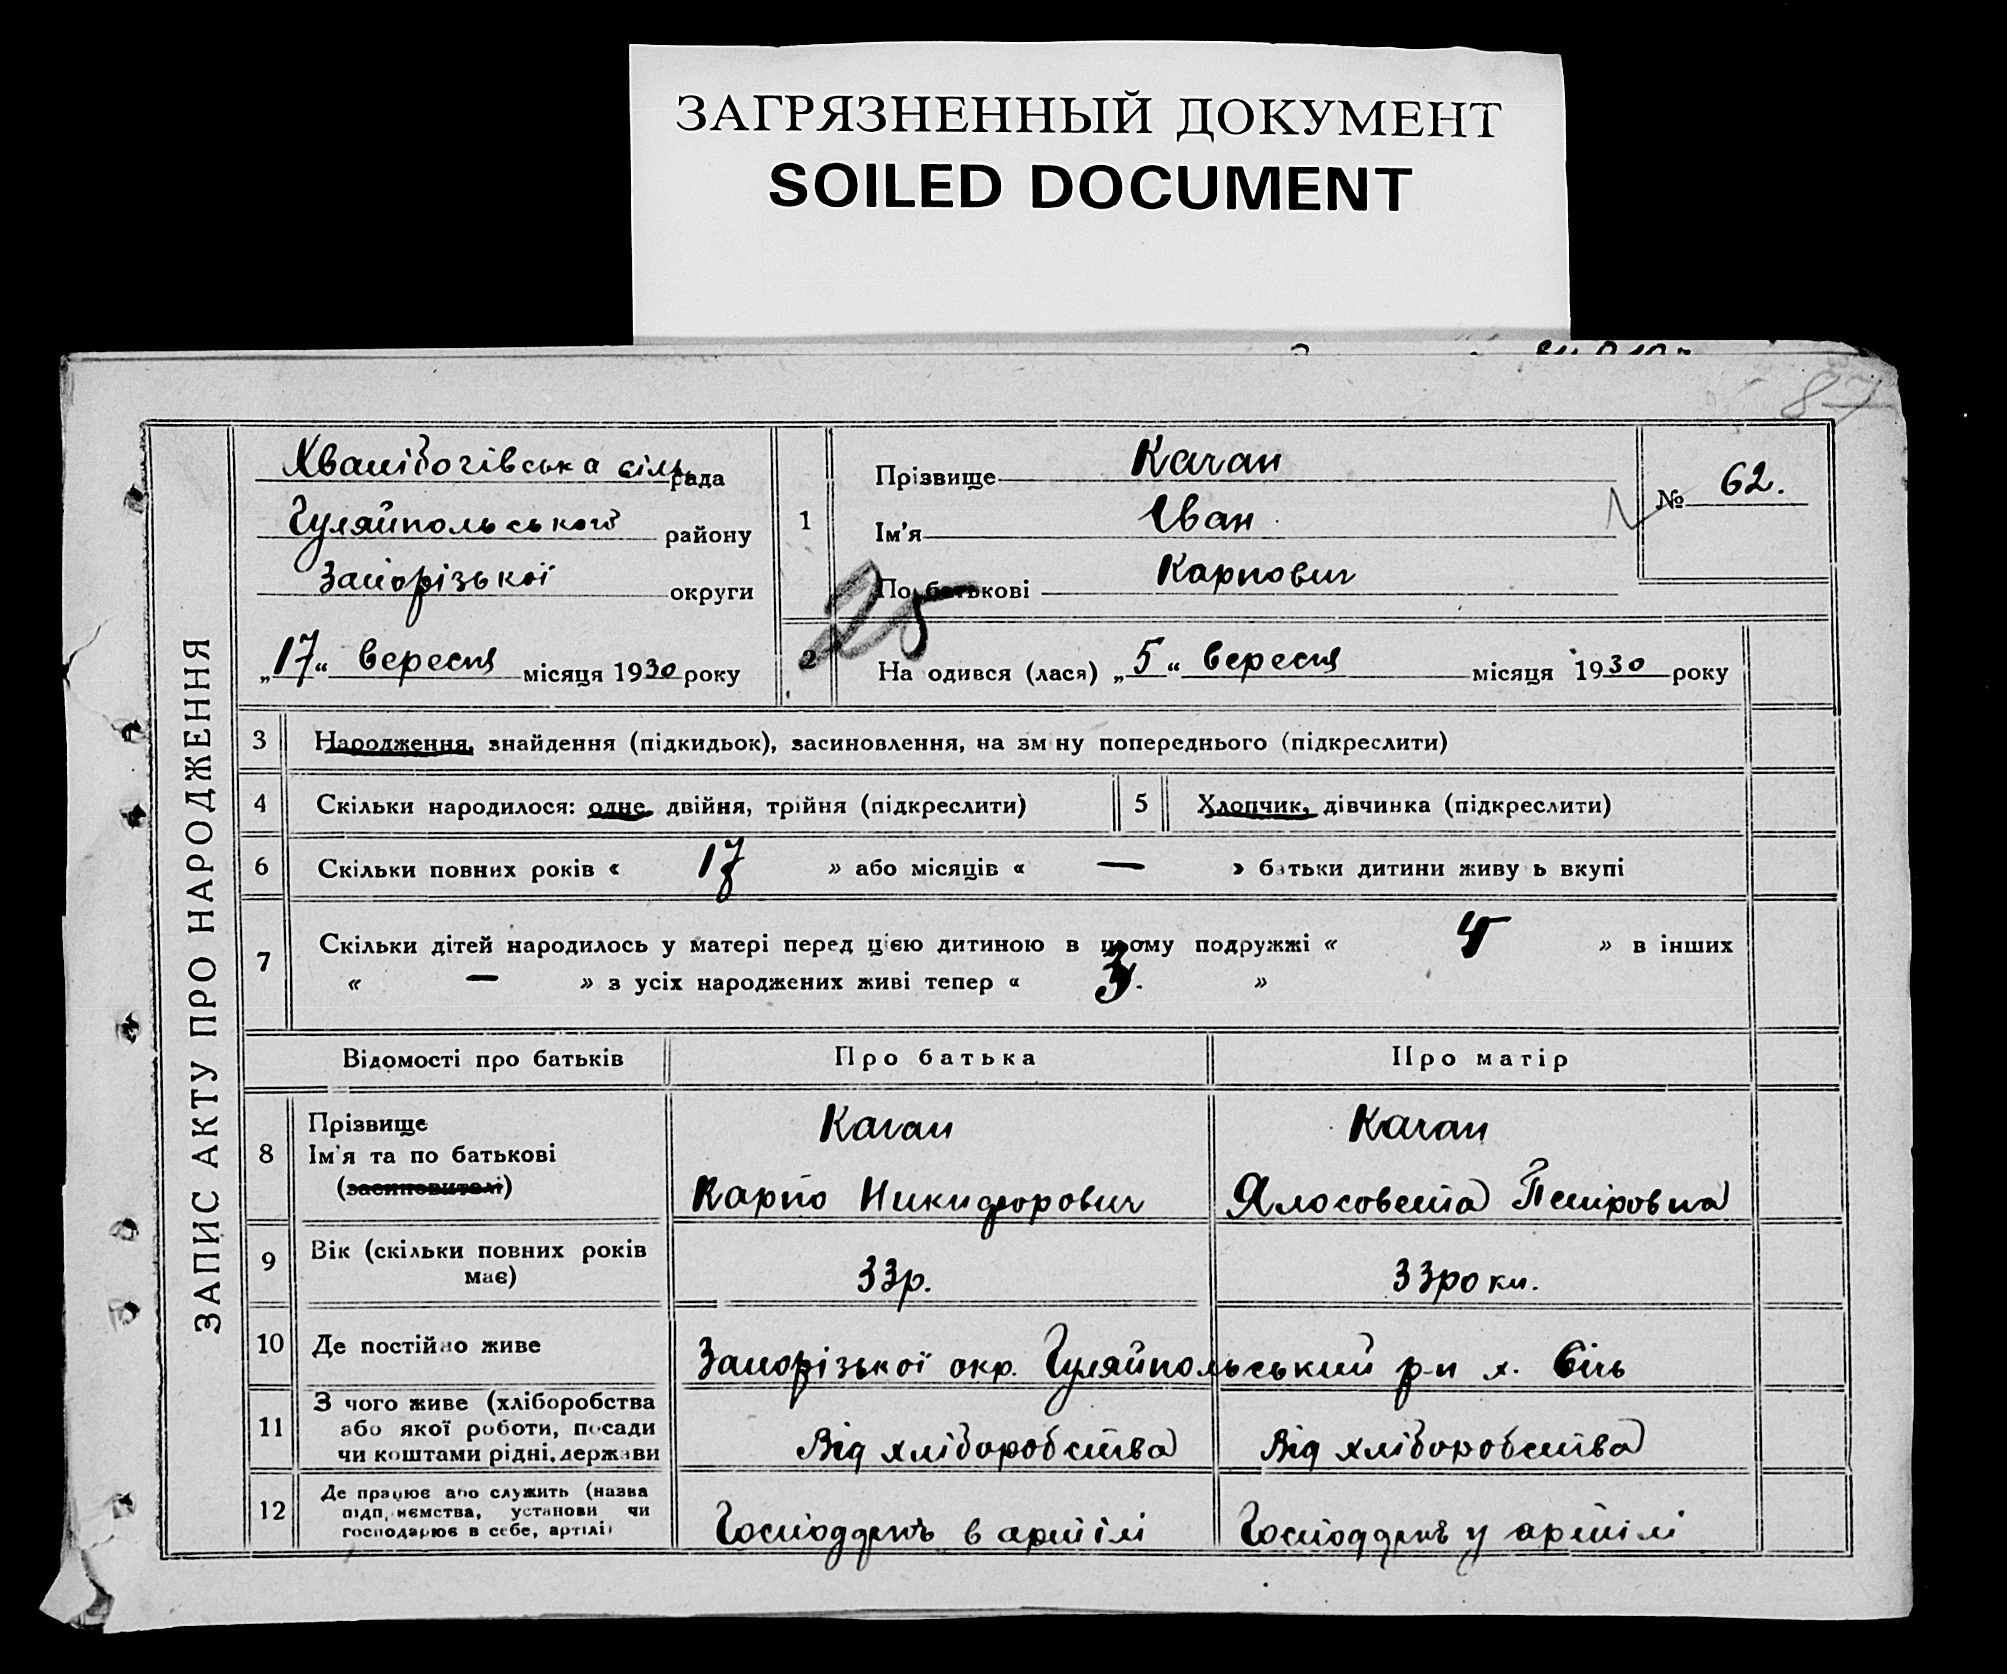 ЗАГРЯЗНЕННЫЙ ДОКУМЕНТ
SOILED DOCUMENT
87
ЗАПИС АКТУ ПРО НАРОДЖЕННЯ
Хвалібогівська сіль рада
Гуляйпольського району
Запорізької округи
„17“ вересня місяця 1930 року
1
Прізвище Качан
Ім’я Іван
По батькові Карпович
№ 62.
25
2
На одився (лася) „5“ вересня місяця 1930 року
3 Народження, знайдення (підкидьок), засиновлення, на зм ну попереднього (підкреслити)
4 Скільки народилося: одне, двійня, трійня (підкреслити) 5 Хлопчик, дівчинка (підкреслити)
6 Скільки повних років « 17 » або місяців « — » батьки дитини живу ь вкупі
7 Скільки дітей народилось у матері перед цією дитиною в цьому подружжі « 4 » в інших
« — » з усіх народжених живі тепер « 3. »
Відомості про батьків Про батька Про матір
8 Прізвище Качан Качан
Ім’я та по батькові
(засиновителі) Карпо Никифорович Ялосовета Петровна
9 Вік (скільки повних років
має) 33р. 33роки.
10 Де постійно живе Запорізької окр. Гуляйпольський р-н х. Січь
11 З чого живе (хліборобства
або якої роботи, посади
чи коштами рідні, держави Від хліборобства Від хліборобства
12 Де працює або служить (назва
підп иємства, установи чи
господарює в себе, артілі) в артілі у артілі